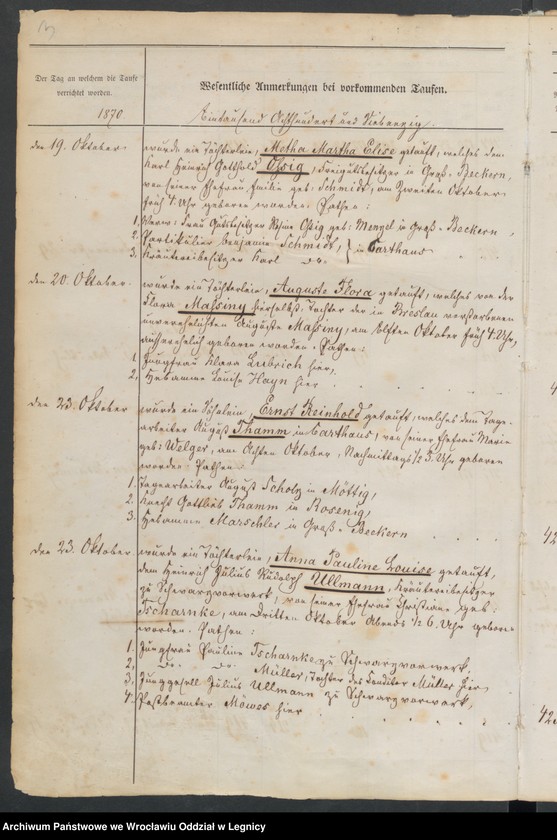 Der Tag an welchem die Taufe
verrichtet worden.
1870
Wesentliche Anmerkungen bei vorkommenden Taufen.
Eintausend Achthundert und Siebenzig.
den 19. Oktober
wurde ein Töchterlein, Metha Martha Elise getauft, welches dem
Karl Heinrich Gotthold Ossig, Freigutsbesitzer in Groß-Beckern,
von seiner Ehefrau Emilie geb: Schmidt, am Zweiten Oktober
früh 4 Uhr geboren worden. Pathen:
1. Verw: Frau Gutsbesitzer Ossig geb: Menzel in Groß-Beckern
2. Partikulier Benjamin Schmidt, } in Carthaus
3. Kräutereibesitzer Karl do.
den 20. Oktober.
wurde ein Töchterlein, Auguste Flora getauft, welches von der
Flora Massiny hierselbst, Tochter der in Breslau verstorbenen
unverehelichten Auguste Massiny, am Elften Oktober früh 4 Uhr,
außerehelich geboren worden. Pathen:
1. Jungfrau Klara Liebrich hier,
2. Hebamme Louise Hayn hier
den 23. Oktober
wurde ein Söhnlein, Ernst Reinhold getauft, welches dem Tage-
arbeiter August Thamm in Carthaus, von seiner Ehefrau Marie
geb: Welzer, am Achten Oktober, Nachmittags ½ 3 Uhr geboren
worden. Pathen:
1. Tagearbeiter August Scholz in
2. Knecht Gottlieb Thamm in Rosenig,
3. Hebamme Marschler in Groß-Beckern
den 23. Oktober.
wurde ein Töchterlein, Anna Pauline Louise getauft,
dem Heinrich Julius Rudolph Ullmann, Kräutereibesitzer
zu Schwarzvorwerk, von seiner Ehefrau Christiane geb:
Tscharnke, am Dritten Oktober Abends ½ 6 Uhr geboren
worden. Pathen:
1. Jungfrau Pauline Tscharnke zu Schwarzvorwerk,
2. do. do. Müller, Tochter des Conditor Müller hier
3. Junggesell Julius Ullmann zu Schwarzvorwerk,
4. Postbeamter Mowes hier
Archiwum Państwowe we Wrocławiu Oddział w Legnicy